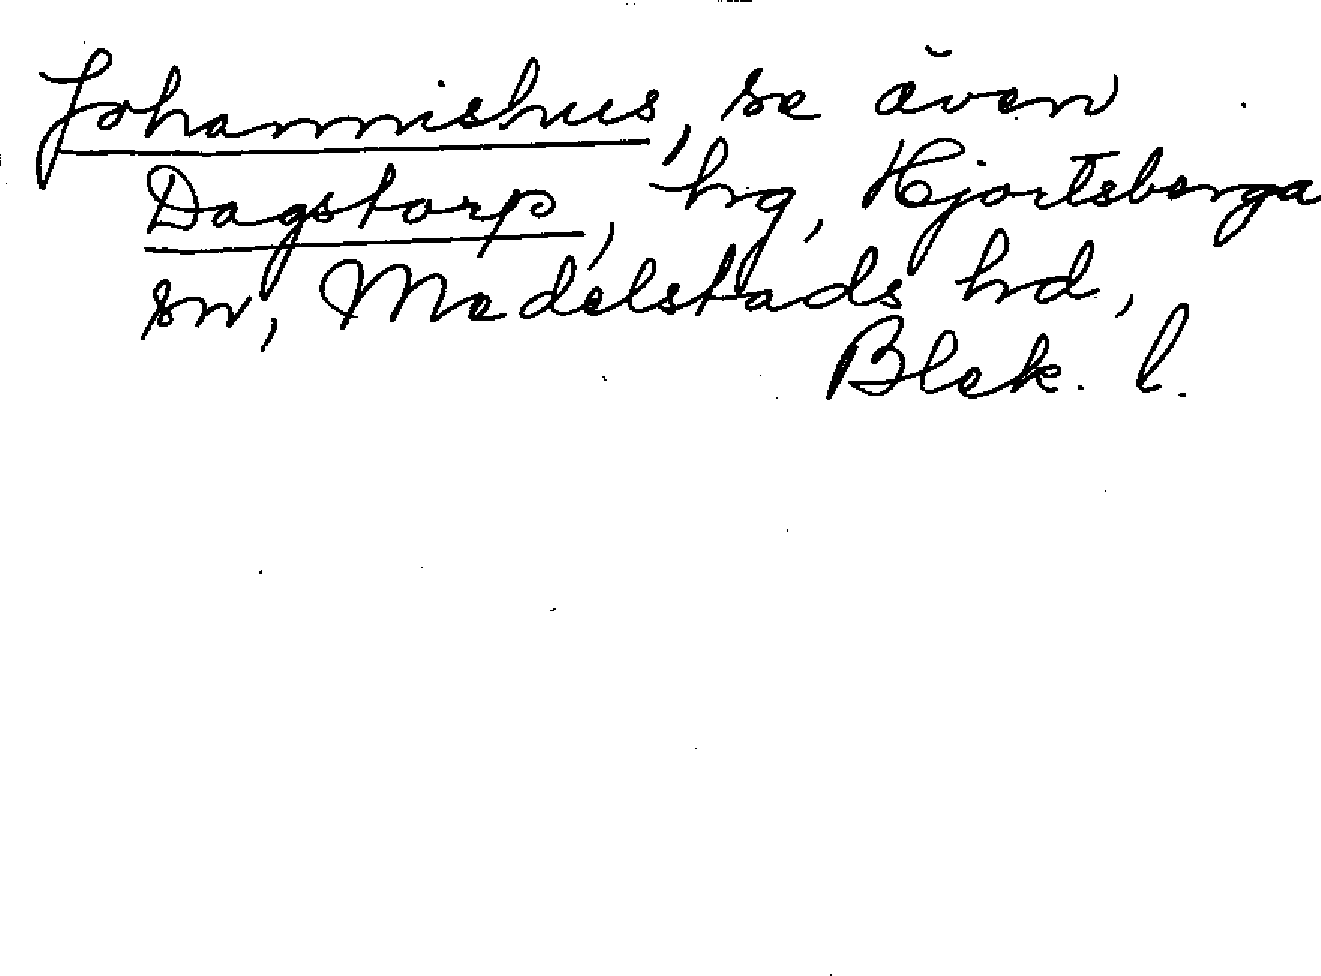 Johannishus, se även
Dagstorp, hg, Hjortsberga
sn, Medelstads hd,
Blek. l.